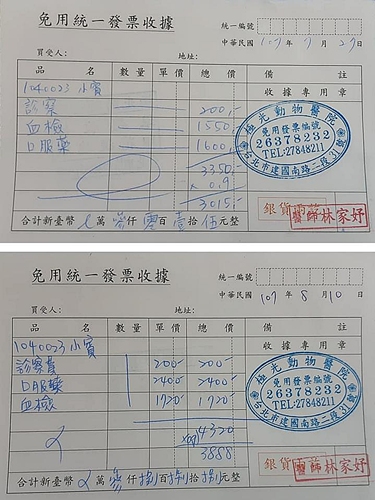 免用統一發票收據
統一編號
中華民國 107年 7月 27日
買受人： 地址：
品名 數量 單價 總價 備註
1040023 小賓 收據專用章
診察 200.-
血檢 1550.-
口服藥 1600.-
3350.-
x 0.9
3015.-
極光動物醫院
免用發票編號
26378232
TEL:27848211
台北市建國南路二段31號
銀貨兩訖
醫師林家妤
合計新臺幣 萬 參仟零百壹拾伍元整
免用統一發票收據
統一編號
中華民國 107年 8月 10日
買受人： 地址：
品名 數量 單價 總價 備註
1040023 小賓 收據專用章
診察費 200- 200-
口服藥 2400- 2400-
血檢 1720- 1720-
4320
3888
極光動物醫院
免用發票編號
26378232
TEL:27848211
台北市建國南路二段31號
銀貨兩訖
醫師林家妤
合計新臺幣 萬 參仟捌百捌拾捌元整